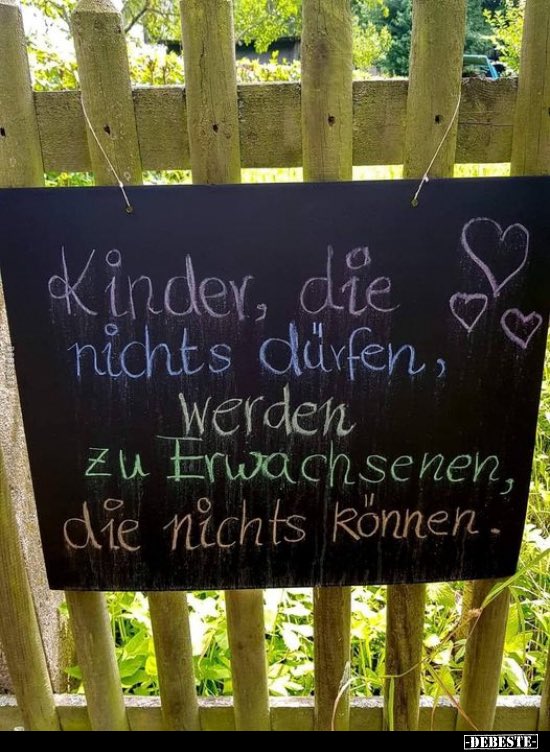 Kinder, die
nichts dürfen,
werden
zu Erwachsenen,
die nichts können.
-DEBESTE-